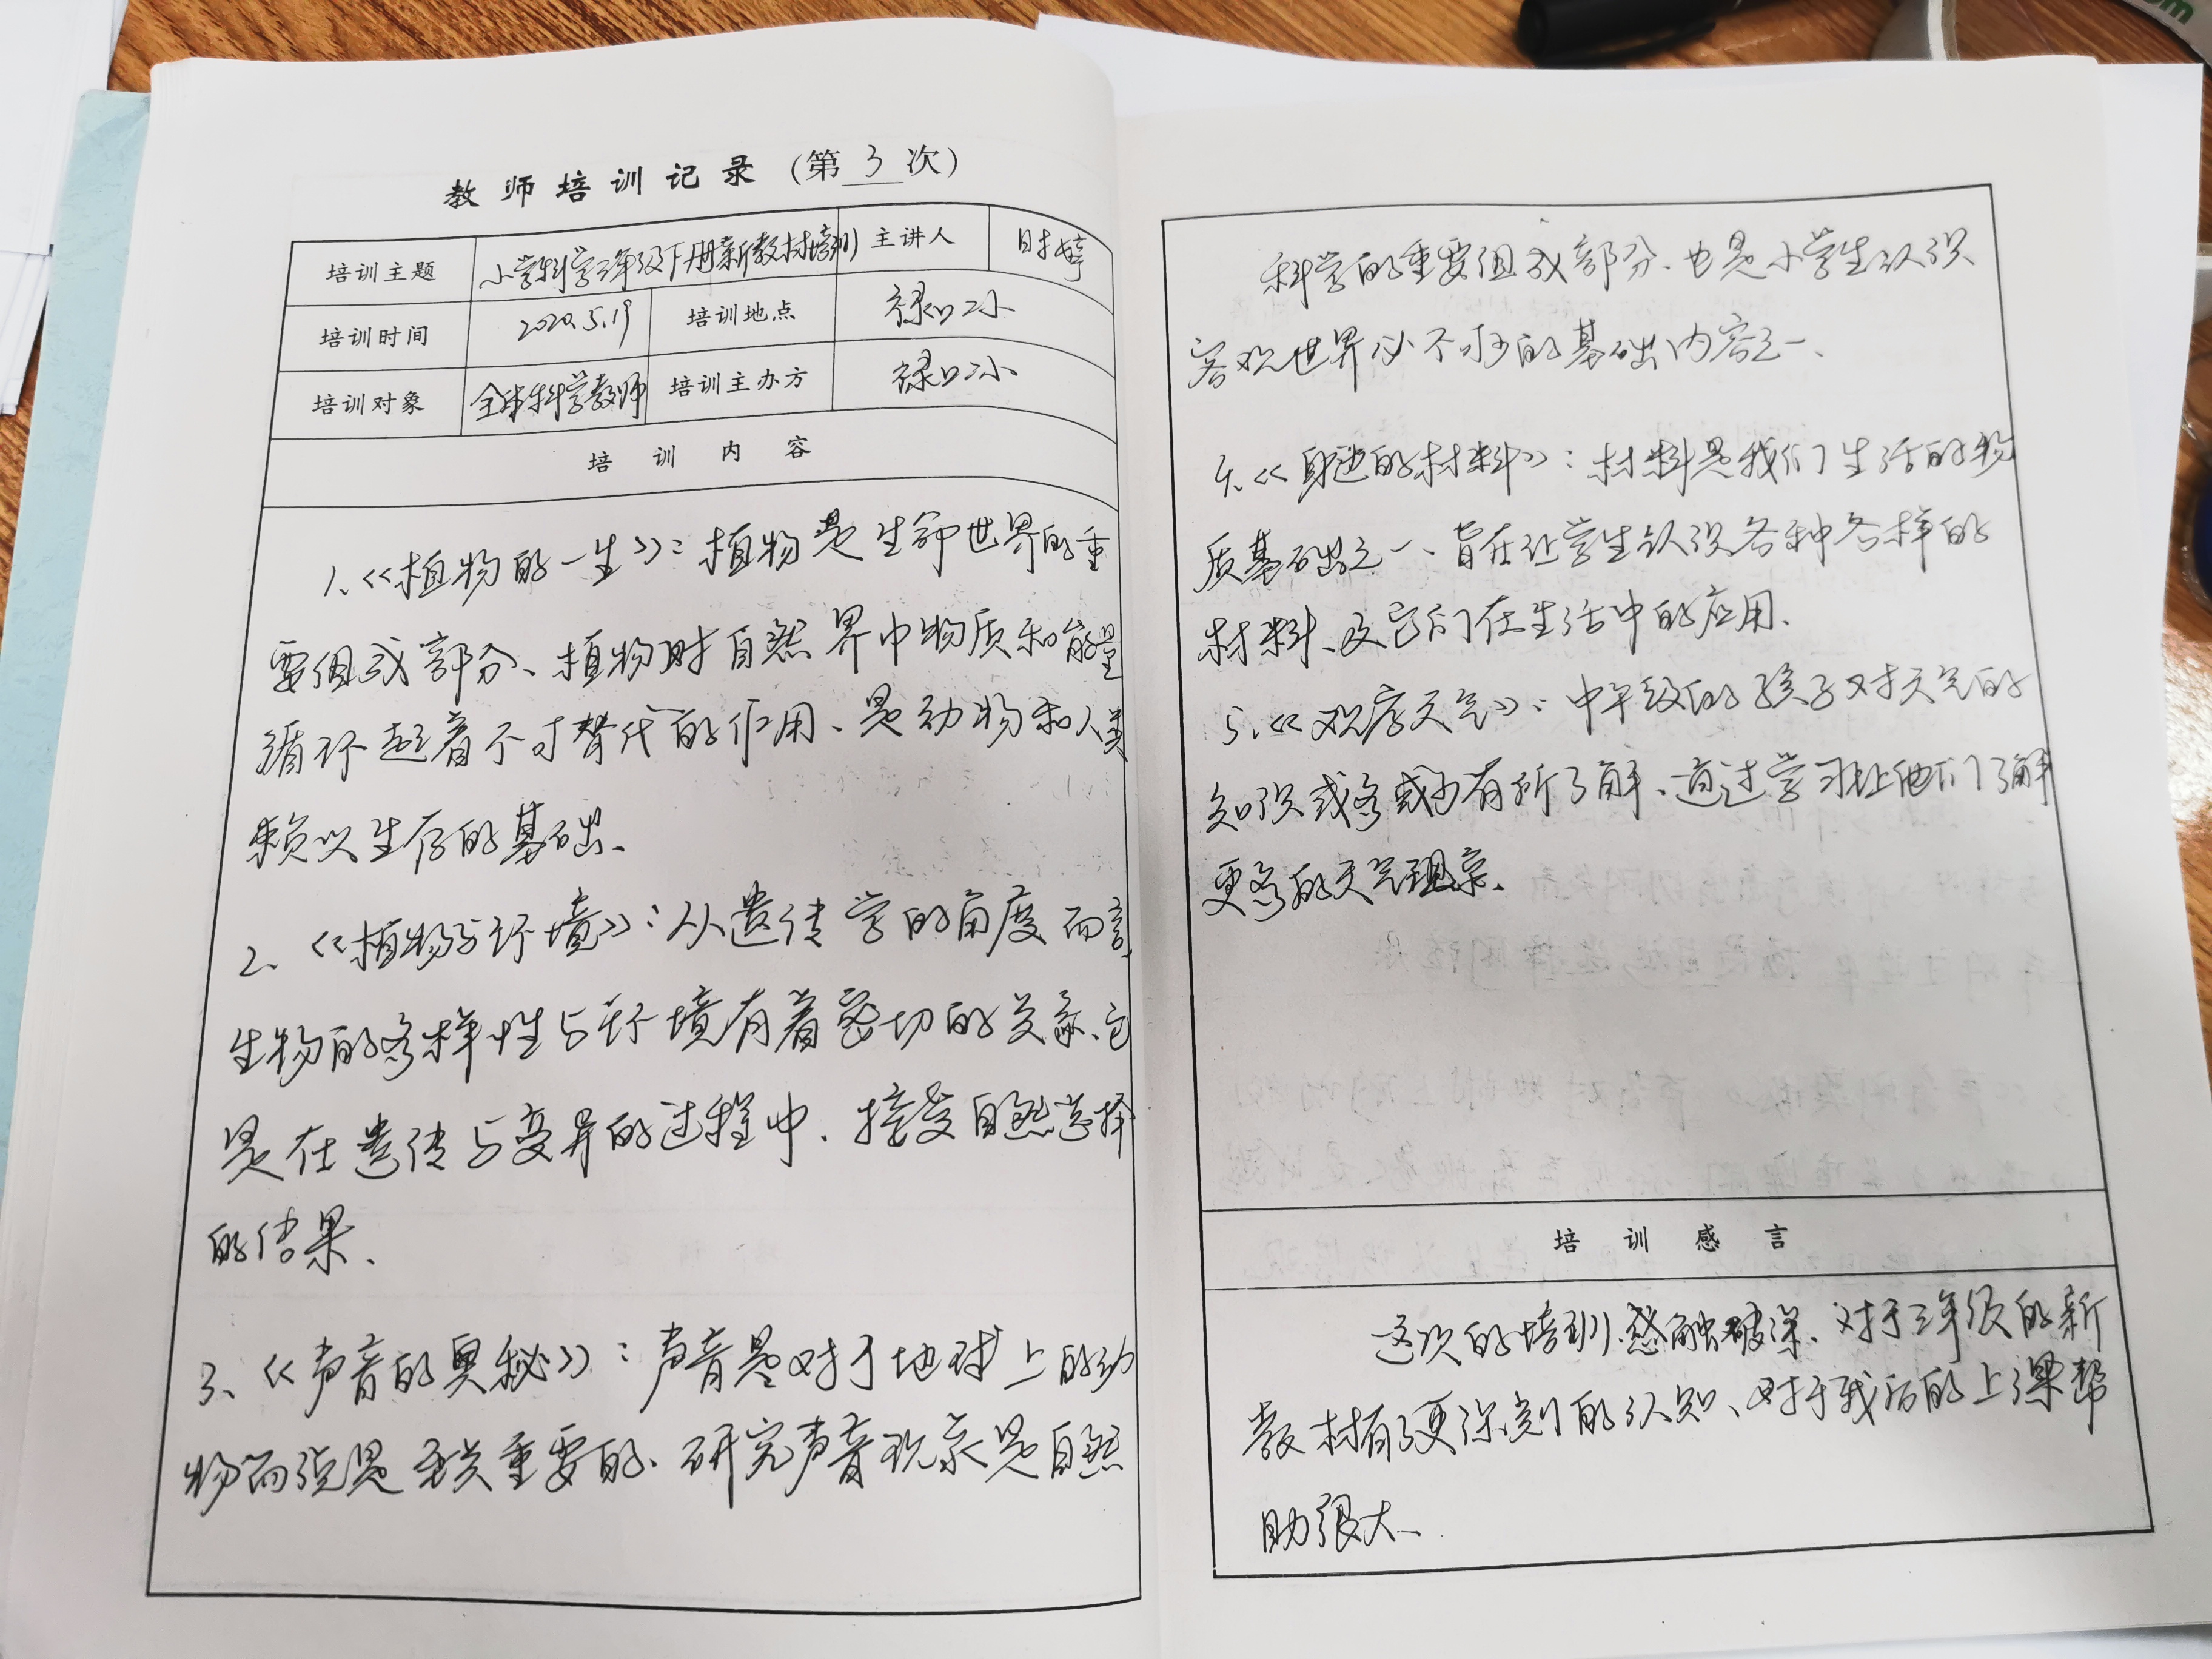 教师培训记录（第3次）
培训主题 小学科学三年级下册新教材培训 主讲人
培训时间 2020.5.19 培训地点 禄口二小
培训对象 全体科学教师 培训主办方 禄口二小
培训内容
1、《植物的一生》：植物是生命世界的重
要组成部分、植物对自然界中物质和能量
循环起着不可替代的作用、是动物和人类
赖以生存的基础、
2、《植物与环境》：从遗传学的角度而言，
生物的多样性与环境有着密切的关系、它
是在遗传与变异的过程中、接受自然选择
的结果、
3、《声音的奥秘》：声音是对于地球上的动
物而说是至关重要的、研究声音现象是自然
科学的重要组成部分、也是小学生认识
客观世界必不可少的基础内容之一、
4、《身边的材料》：材料是我们生活的物
质基础之一、旨在让学生认识各种各样的
材料、及它们在生活中的应用、
5、《观察天气》：中年级的孩子对天气的
知识或多或少有所了解、通过学习让他们了解
更多的天气现象、
培训感言
这次的培训感触破深、对于三年级的新
教材有了更深刻的认知、对于我后的上课帮
助很大、